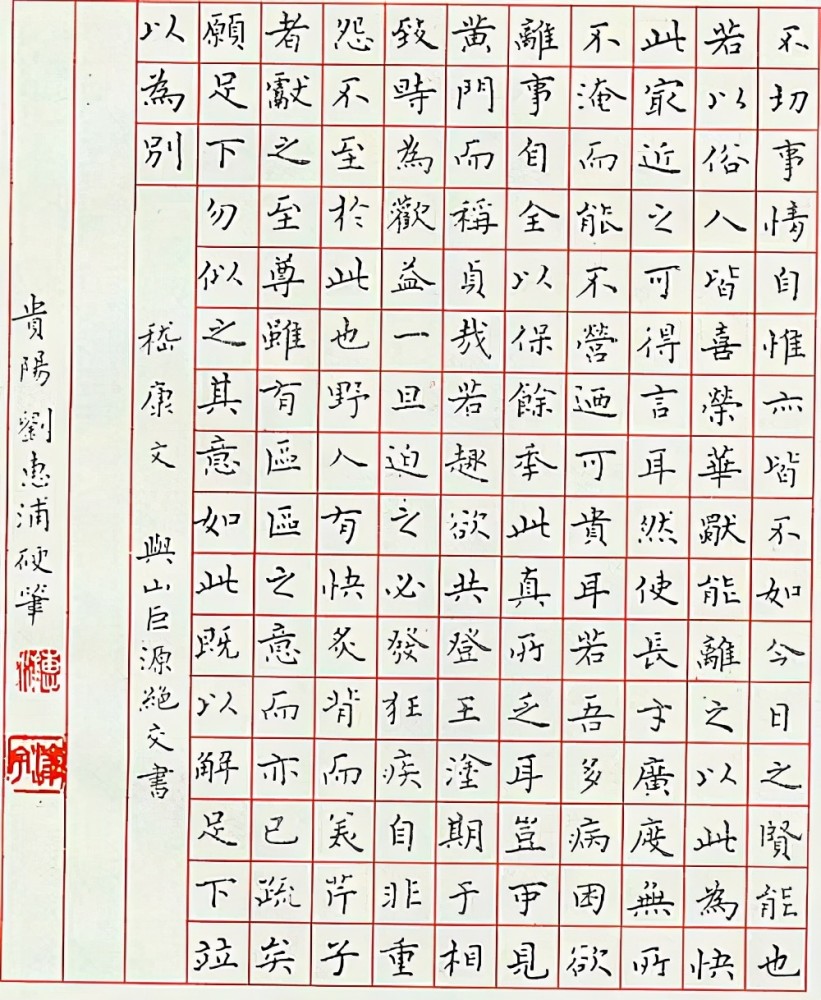 不切事情自惟亦皆不如今日之賢能也
若以俗人皆喜榮華獨能離之以此為快
此最近之可得言耳然使長才廣度無所
不淹而能不營迺可貴耳若吾多病困欲
離事自全以保餘年此真所乏耳豈可見
黄門而稱貞哉若趣欲共登王塗期于相
致時為歡益一旦迫之必發狂疾自非重
怨不至於此也野人有快炙背而美芹子
者獻之至尊雖有區區之意而亦已疏矣
願足下勿似之其意如此既以解足下並
以為別
嵇康文 與山巨源絕交書
貴陽劉惠浦硬筆